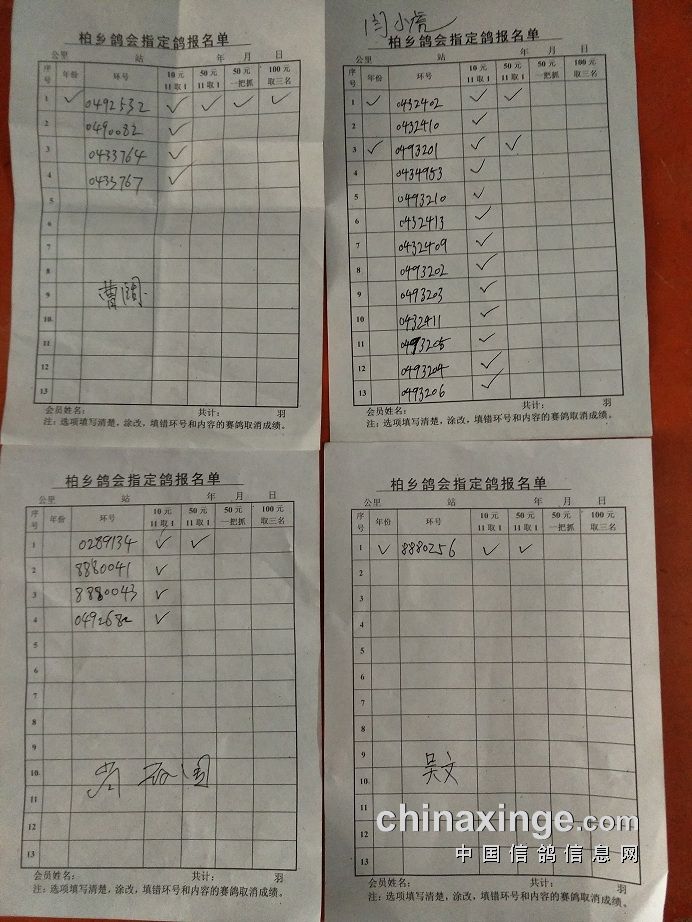 柏乡鸽会指定鸽报名单
公里 站 年 月 日
序号 年份 环号 10元 11取1 50元 11取1 50元 一把抓 100元 取三名
1 ✓ 0492532 ✓ ✓ ✓ ✓
2 0490082 ✓
3 0433764 ✓
4 0433767 ✓
5
6
7
8
9 曹阔
10
11
12
13
会员姓名: 共计: 羽
注:选项填写清楚,涂改,填错环号和内容的赛鸽取消成绩。
闫小虎
柏乡鸽会指定鸽报名单
公里 站 年 月 日
序号 年份 环号 10元 11取1 50元 11取1 50元 一把抓 100元 取三名
1 ✓ 0432402 ✓ ✓
2 0432410 ✓
3 ✓ 0493201 ✓ ✓
4 0434953 ✓
5 0493210 ✓
6 0432413 ✓
7 0432409 ✓
8 0493202 ✓
9 0493203 ✓
10 0432411 ✓
11 0493205 ✓
12 0493204 ✓
13 0493206 ✓
会员姓名: 共计: 羽
注:选项填写清楚,涂改,填错环号和内容的赛鸽取消成绩。
柏乡鸽会指定鸽报名单
公里 站 年 月 日
序号 年份 环号 10元 11取1 50元 11取1 50元 一把抓 100元 取三名
1 0289134 ✓ ✓
2 8880041 ✓
3 8880043 ✓
4 0492682 ✓
5
6
7
8
9
10
11
12
13
会员姓名: 共计: 羽
注:选项填写清楚,涂改,填错环号和内容的赛鸽取消成绩。
柏乡鸽会指定鸽报名单
公里 站 年 月 日
序号 年份 环号 10元 11取1 50元 11取1 50元 一把抓 100元 取三名
1 ✓ 8880256 ✓ ✓
2
3
4
5
6
7
8
9
10 吴文
11
12
13
会员姓名: 共计: 羽
注:选项填写清楚,涂改,填错环号和内容的赛鸽取消成绩。
chinaxinge.com
中国信鸽信息网